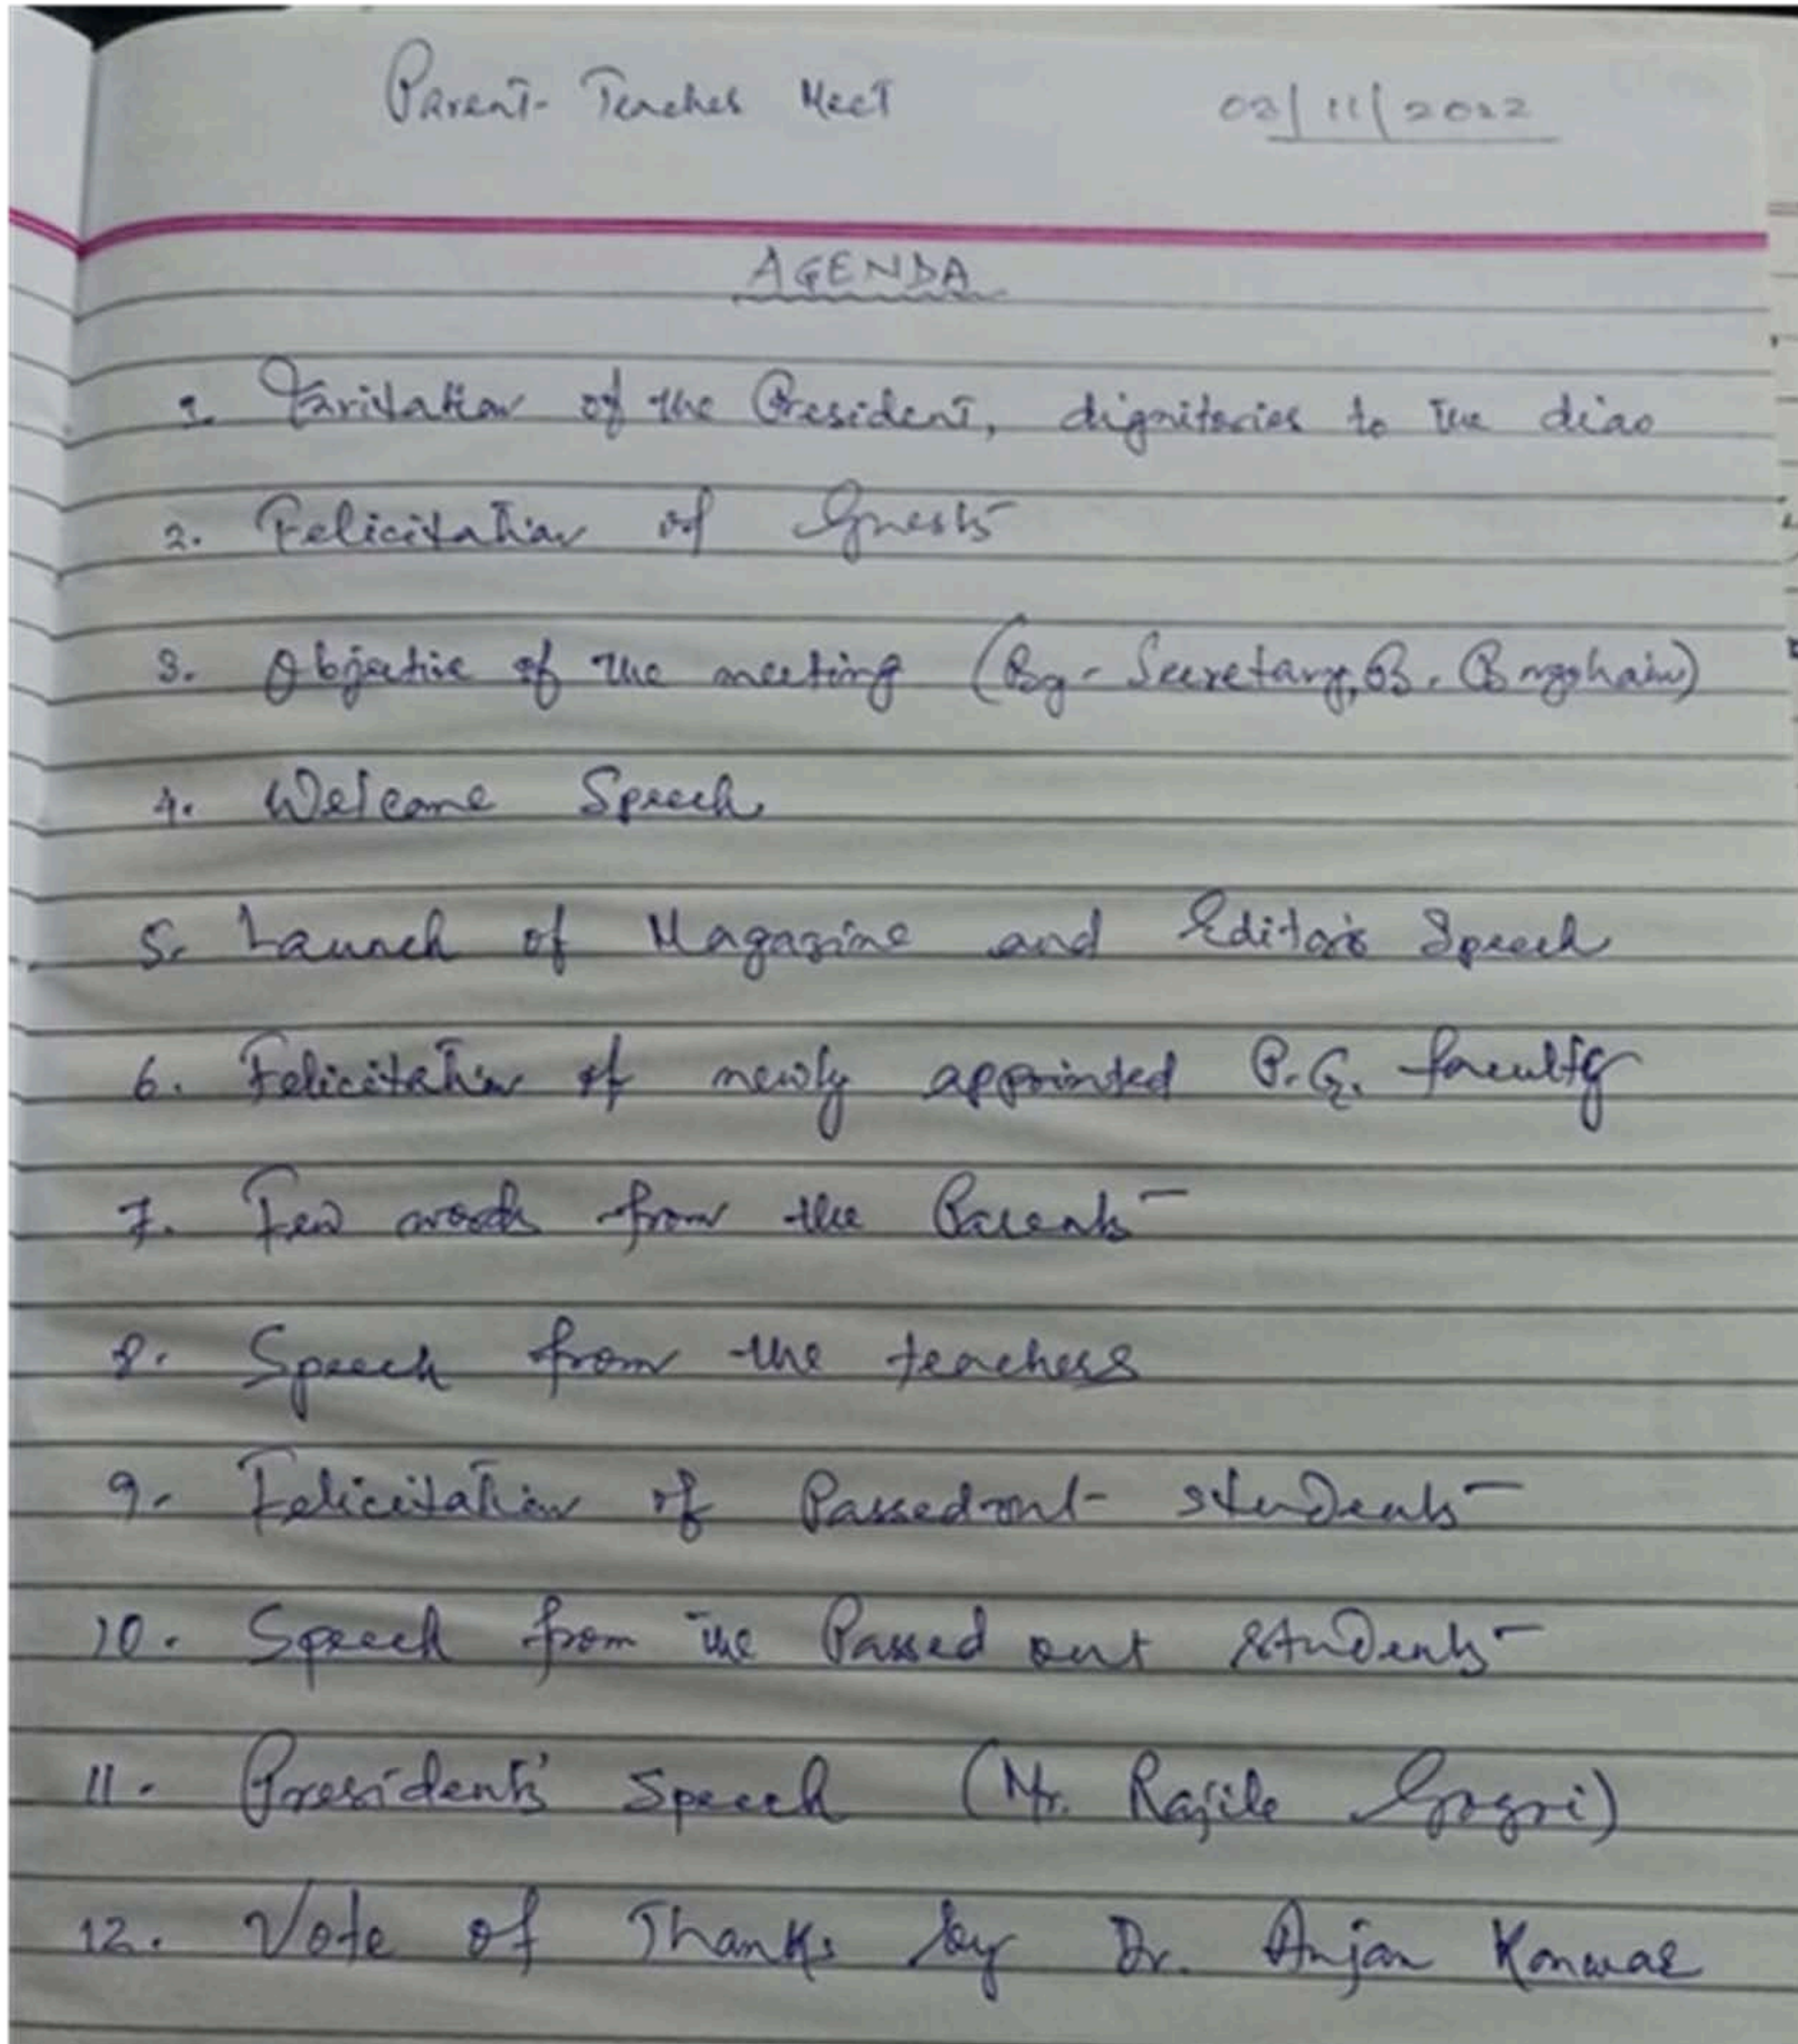 Parent- Teacher Meet 03/11/2022
AGENDA
1. Invitation of the President, dignitaries to the dias
2. Felicitation of Guests
3. Objective of the meeting (By- Secretary, B.
4. Welcome Speech
5. Launch of Magazine and Editor's Speech
6. Felicitation of newly appointed P.G. faculty
7. Few words from the Parents
8. Speech from the teachers
9. Felicitation of Passedout students
10. Speech from the Passed out students
11. President's Speech (Mr. Gogoi)
12. Vote of Thanks by Dr. Anjan Konwar